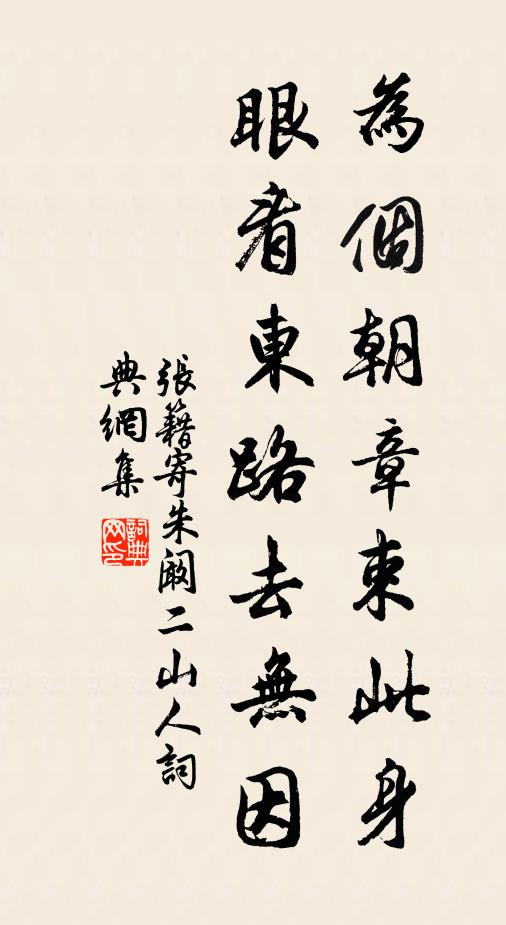 為個朝章束此身
眼看東路去無因
張籍寄朱闞二山人詞
典網集
詞典
网印